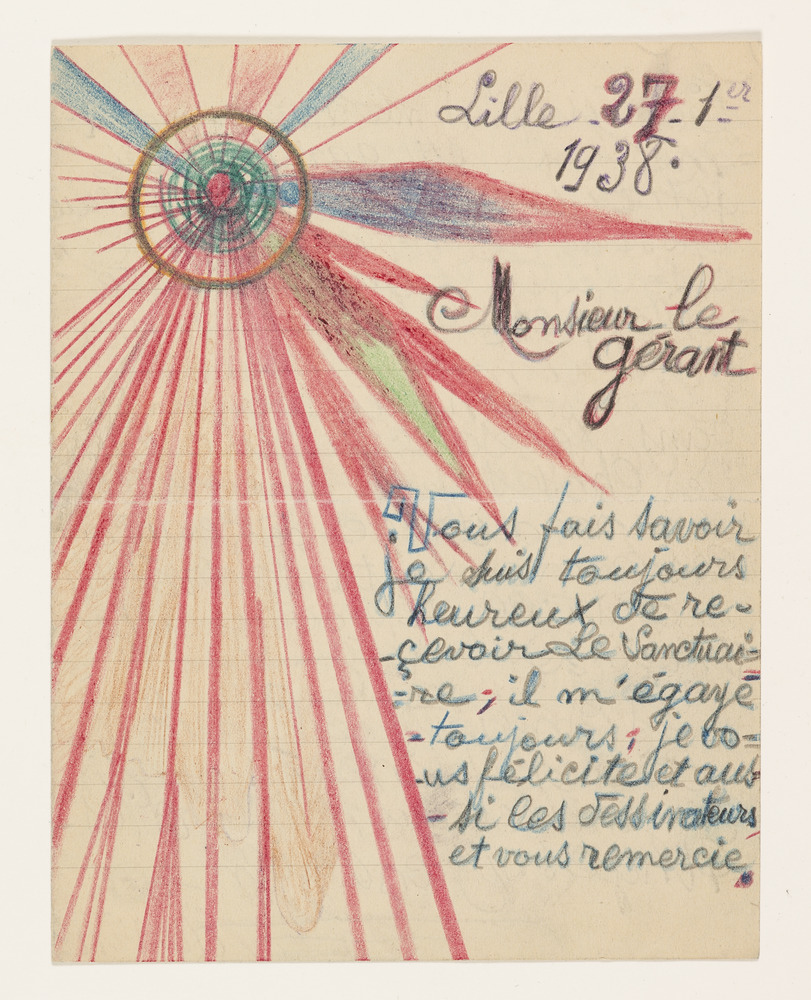 Lille - 27 - 1er
1938.
Monsieur le
gérant
Vous fais savoir
je suis toujours
heureux de re-
-çevoir Le Sanctuai-
-re, il m'égaye
-toujours, je vo-
-us félicite et aus-
-si les dessinateurs
et vous remercie.